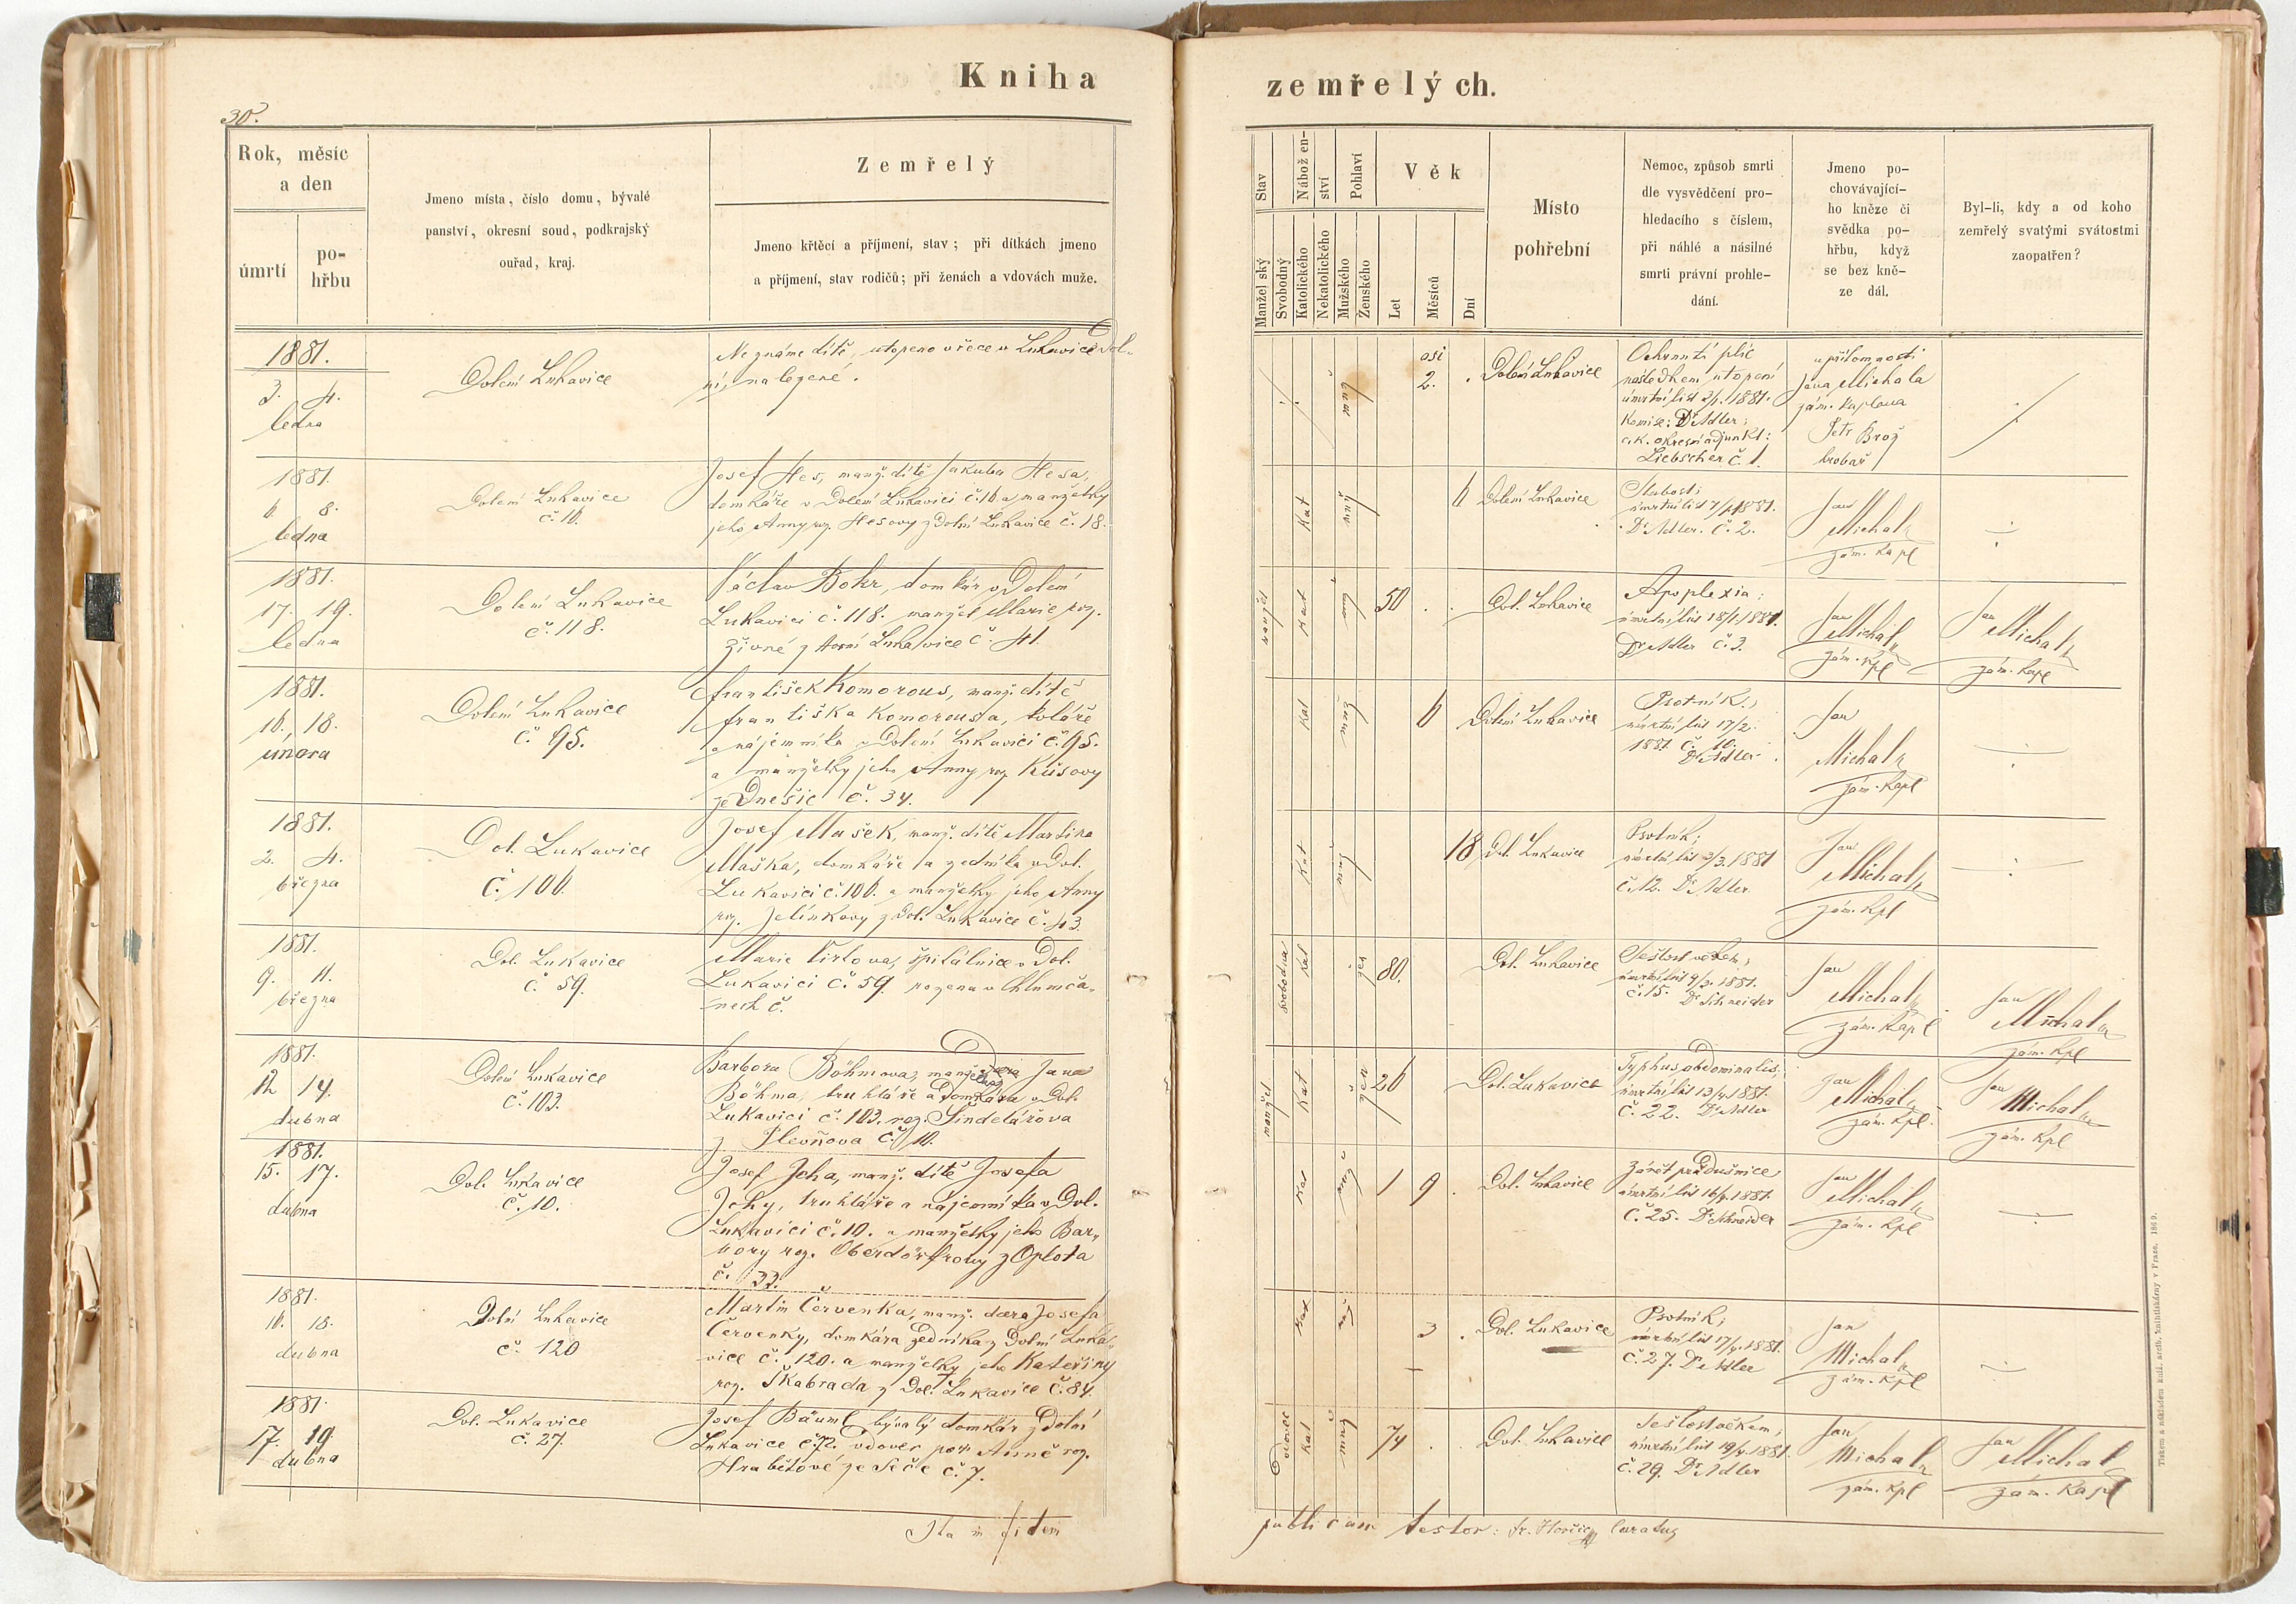 Kniha
zemřelých.
30.
Rok, měsíc
a den
úmrtí
po-
hřbu
Jmeno místa, číslo domu, bývalé
panství, okresní soud, podkrajský
ouřad, kraj.
Zemřelý
Jmeno křtěcí a příjmení, stav; při dítkách jmeno
a příjmení, stav rodičů; při ženách a vdovách muže.
Stav
Manželský
Svobodný
Nábožen-
ství
Katolického
Nekatolického
Pohlaví
Mužského
Ženského
Věk
Let
Měsíců
Dní
Místo
pohřební
Nemoc, způsob smrti
dle vysvědčení pro-
hledacího s číslem,
při náhlé a násilné
smrti právní prohle-
dání.
Jmeno po-
chovávající-
ho kněze či
svědka po-
hřbu, když
se bez kně-
ze dál.
Byl-li, kdy a od koho
zemřelý svatými svátostmi
zaopatřen?
1881.
3. 4.
ledna
Dolení Lukavice
Neznáme dítě, utopeno v řece v Lukavice Dol-
ní, nalezené.
asi
2.
Dolení Lukavice
Ochrnutí plic
následkem utopení
úmrtní list 3/1. 1881.
Komise: Dr Adler;
c.k. okresní adjunkt:
Liebscher č. 1.
u přítomnosti
Jana Michala
zám. kaplana
Petr Brož
hrobař
1881.
6. 8.
ledna
Dolení Lukavice
č. 16.
Josef Hes, manž. dítě Jakuba Hesa,
domkáře v Dolení Lukavici č. 16 a manželky
jeho Anny roz. Hesovy z Dolní Lukavice č. 18.
Kat
muž
6
Dolení Lukavice
Slabost;
úmrtní list 7/1 1881.
Dr Adler. č. 2.
Jan
Michal
zám. kapl
1881.
17. 19.
ledna
Dolení Lukavice
č. 118.
Václav Bohr, domkár v Dolení
Lukavici č. 118. manžel Marie roz.
Živné z Horní Lukavice č. 41.
manžel
Kat
muž
50
Dol. Lukavice
Apoplexia;
úmrtní list 18/1. 1881.
Dr Adler č. 3.
Jan
Michal
zám. kpl
Jan
Michal
zám. kapl
1881.
16. 18.
února
Dolení Lukavice
č. 95.
František Komorous, manž. dítě
Františka Komorousa, koláře
a nájemníka v Dolení Lukavici č. 95.
a manželky jeho Anny roz.
ze Dnešic č. 34.
Kat
muž
6
Dolení Lukavice
Psotník;
úmrtní list 17/2.
1881. č. 10.
Dr Adler.
Jan
Michal
zám. kapl
1881.
2. 4.
března
Dol. Lukavice
č. 106.
Josef Mašek, manž. dítě Martina
Maška, domkáře a zedníka v Dol.
Lukavici č. 106. a manželky jeho Anny
roz. Jelínkovy z Dol. Lukavice č. 43.
Kat
muž
18
Dol. Lukavice
Psotník;
úmrtní list 3/3. 1881
č. 12. Dr Adler.
Jan
Michal
zám. kpl
1881.
9. 11.
března
Dol. Lukavice
č. 59.
Marie Virtova, špitálnice v Dol.
Lukavici č. 59. rozena v Chlumča-
nech č.
svobodna
Kat
žen
80.
Dol. Lukavice
Sešlost věkem;
úmrtní list 9/3. 1881.
č. 15. Dr Schneider
Jan
Michal
zám. kapl
Jan
Michal
zám. kpl
1881.
12 14.
dubna
Dolení Lukavice
č. 103.
Barbora Böhmova, manželka Jana
Böhma, truhláře a domkára v Dol.
Lukavici č. 103. roz. Šindelářova
z Plevňova č. 10.
manžel
Kat
žen
26
Dol. Lukavice
Typhus abdominalis;
úmrtní list 13/4. 1881.
č. 22. Dr Adler
Jan
Michal
zám. kpl.
Jan
Michal
zám. kpl
1881.
15. 17.
dubna
Dol. Lukavice
č. 10.
Josef Jcha, manž. dítě Josefa
Jchy, truhláře a nájemníka v Dol.
Lukavici č. 10. a manželky jeho Bar-
bory roz. Oberdörfrovy z Oplota
č. 33.
Kat
muž
1 9
Dol. Lukavice
Zánět průdušnice;
úmrtní list 16/4. 1881.
č. 25. Dr Schneider
Jan
Michal
zám. kpl
1881.
16. 18.
dubna
Dolní Lukavice
č. 120
Martin Červenka, manž. dcera Josefa
Červenky, domkára zedníka z Dolní Luka-
vice č. 120. a manželky jeho Kateřiny
roz. Škabrada z Dol. Lukavice č. 84.
Kat
3
Dol. Lukavice
Psotník;
úmrtní list 17/4. 1881.
č. 27. Dr Adler
Jan
Michal
zám. kpl
1881.
17. 19.
dubna
Dol. Lukavice
č. 27.
Josef Bäuml bývalý domkár z Dolní
Lukavice vdovec po Anně roz.
Hrabětové ze Seče č. 7.
vdovec
Kat
muž
74
Dol. Lukavice
Sešlost věkem;
úmrtní list 19/4. 1881.
č. 29. Dr Adler
Jan
Michal
zám. kpl
Jan
Michal
zám. kapl
Ita in fidem
publicam testor: Fr. Curatus
Tiskem a nákladem knížecí arcib. knihtiskárny v Praze. 1869.